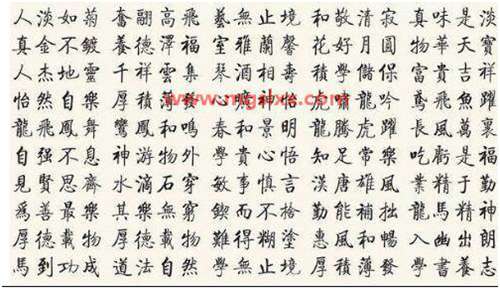 人淡如菊 奮翮高飛 藝無止境 和敬清寂 真味是淡
真金不鍍 養德澤福 室雅蘭馨 花好月圓 物華天寶
人杰地靈 千祥雲集 琴酒相壽 積學儲保 富貴吉祥
怡然自樂 厚積薄 心神怡 虎龍吟 鳶飛魚躍
龍飛鳳舞 鸞鳳和鳴 春和景明 龍騰虎躍 長風萬裏
自强不息 神游物外 學貴心悟 知足常樂 吃虧是福
見賢思齊 水滴石穿 敏事慎言 漢唐雄風 業精于勤
爲善最樂 其樂無窮 鍥而不捨 勤能補拙 龍馬精神
厚德載物 厚德載物 難得糊塗 惠風和暢 入幽出朗
馬到功成 道法自然 學無止境 厚積薄發 學書養志